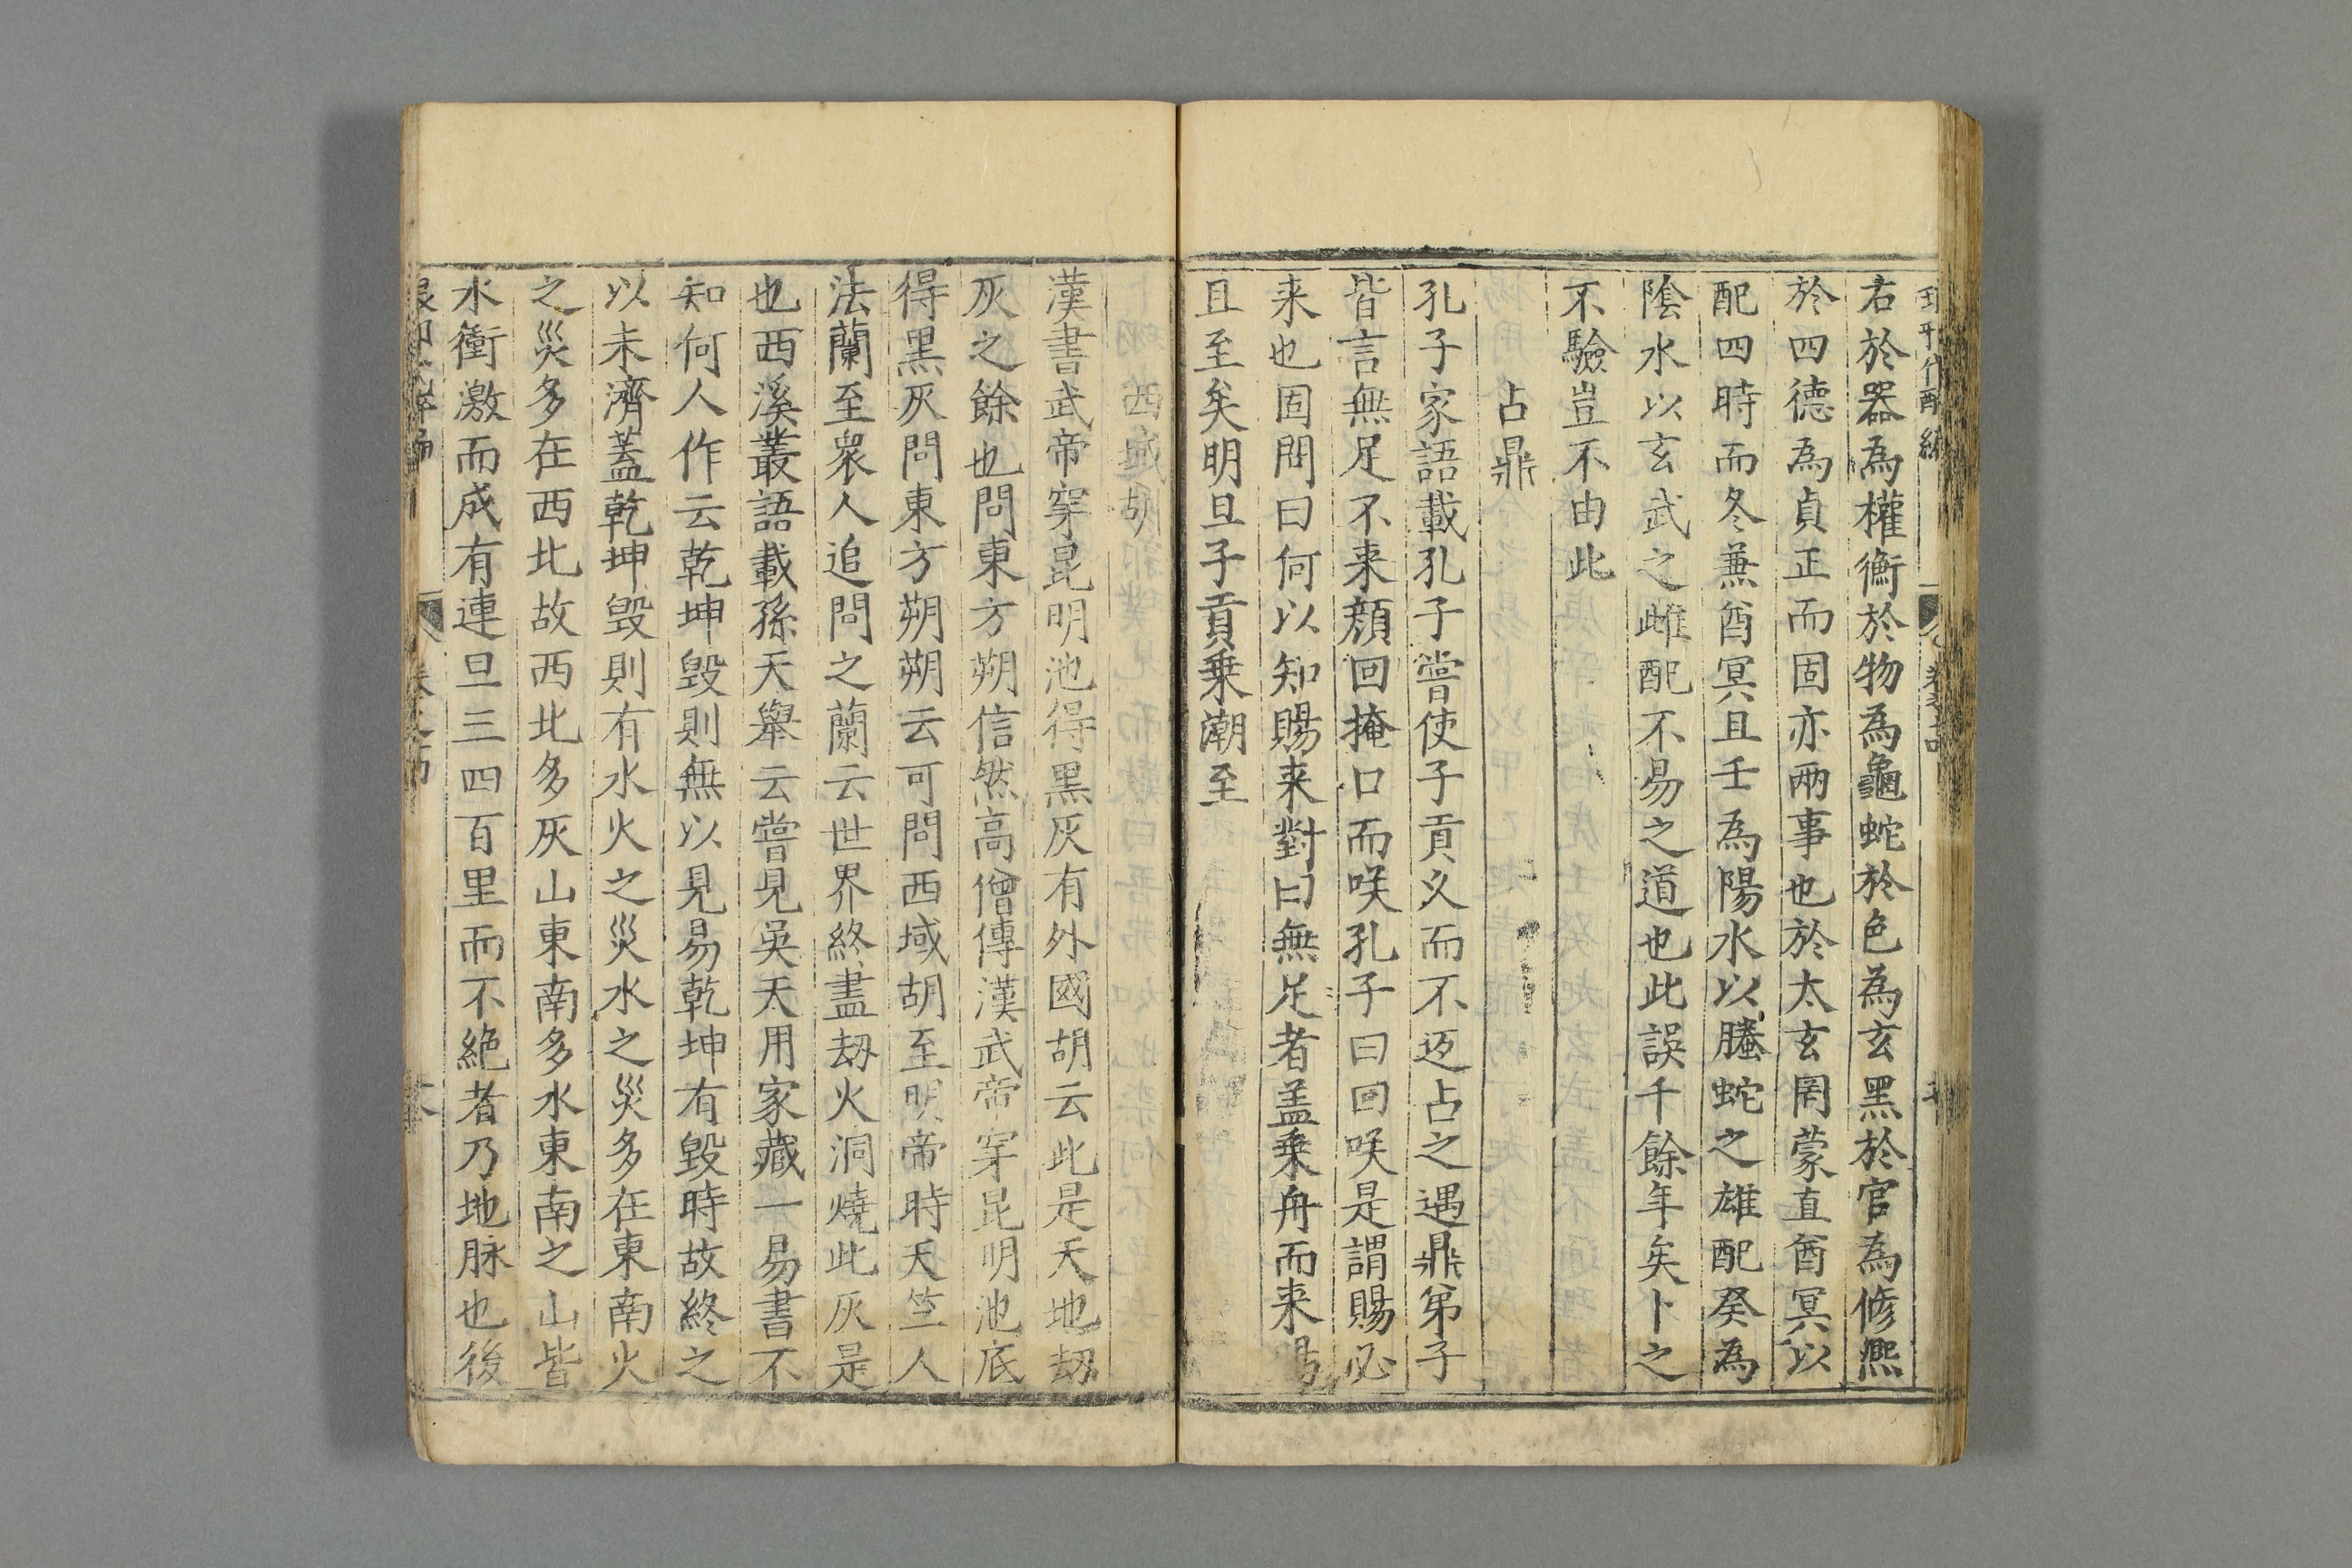 右於器為權衡於物為龜蛇於色為玄黑於官為修熙
於四德為貞正而固亦兩事也於太玄罔蒙直酋冥以
配四時而冬兼酋冥且壬為陽水以螣蛇之雄配癸為
陰水以玄武之雌配不易之道也此誤千餘年矣卜之
不驗豈不由此
占鼎
孔子家語載孔子嘗使子貢乆而不返占之遇鼎弟子
皆言無足不来顔回掩口而咲孔子曰回咲是謂賜必
来也固問曰何以知賜来對曰無足者盖乗舟而来
且至矣明旦子貢乗潮至
西域胡
漢書武帝穿昆明池得黑灰有外國胡云此是天地刼
灰之餘也問東方朔信然高僧傳漢武帝穿昆明池底
得黑灰問東方朔朔云可問西域胡至明帝時天竺人
法蘭至衆人追問之蘭云世界終盡刼火洞燒此灰是
也西溪叢語載孫天舉云嘗見吳天用家藏一易書不
知何人作云乾坤毀則無以見易乾坤有毀時故終之
以未濟蓋乾坤毀則有水火之災水之災多在東南火
之災多在西北故西北多灰山東南多水東南之山皆
水衝激而成有連旦三四百里而不絶者乃地脉也後